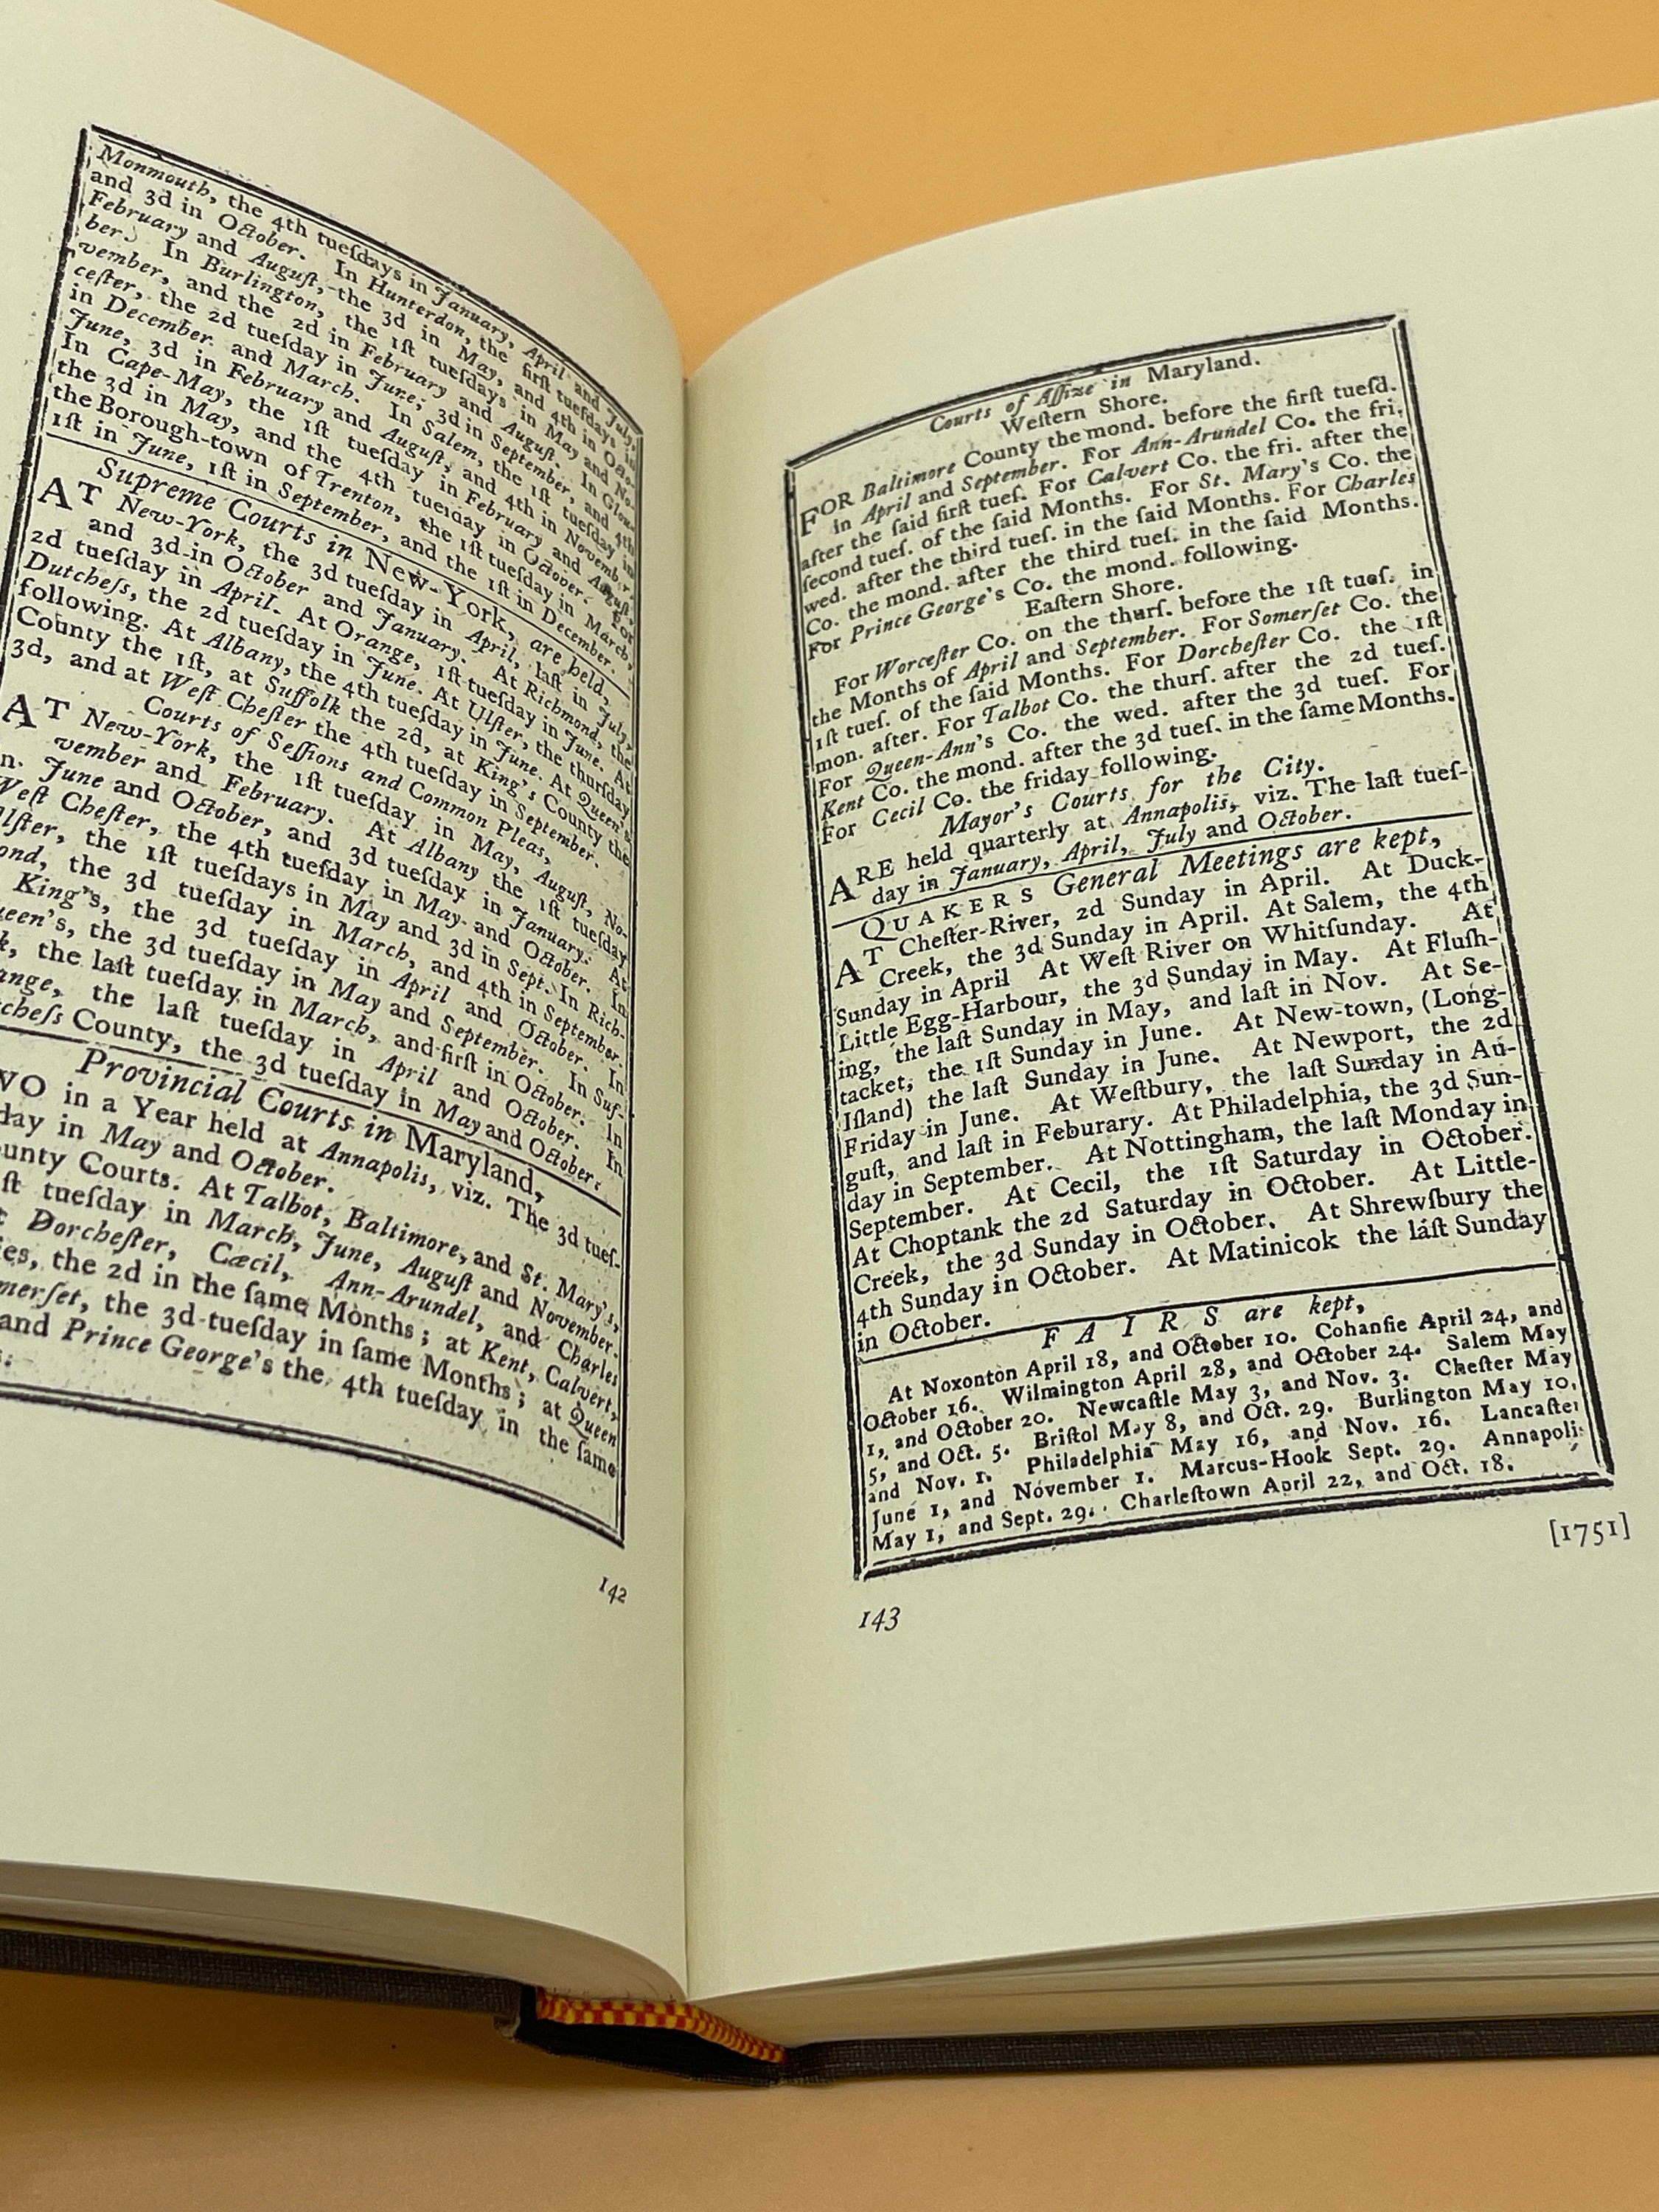 Monmouth, the 4th tueſdays in January, April and July,
and 3d in October. In Hunterdon, the firſt tueſdays in
February and Auguſt, the 3d in May, and 4th in Octo-
ber. In Burlington, the 1ſt tueſdays in May and No-
vember, and the 2d in February and Auguſt. In Glou-
ceſter, the 2d tueſday in June, 3d in September, and 4th
in December and March. In Salem, the 1ſt tueſday in
June, 3d in February and Auguſt, and 4th in November.
In Cape-May, the 1ſt tueſday in February and Auguſt,
the 3d in May, and the 4th tueſday in October. For
the Borough-town of Trenton, the 1ſt tueſday in March,
1ſt in June, 1ſt in September, and the 1ſt in December.
Supreme Courts in New-York, are held,
AT New-York, the 3d tueſday in April, laſt in July,
and 3d in October and January. At Richmond, the
2d tueſday in April. At Orange, 1ſt tueſday in June. At
Dutcheſs, the 2d tueſday in June. At Ulſter, the thurſday
following. At Albany, the 4th tueſday in June. At Queen's
County the 1ſt, at Suffolk the 2d, at King's County the
3d, and at Weſt Cheſter the 4th tueſday in September.
Courts of Seſſions and Common Pleas,
AT New-York, the 1ſt tueſday in May, Auguſt, No-
vember and February. At Albany the 1ſt tueſday
n. June and October, and 3d tueſday in January. At
Weſt Cheſter, the 4th tueſday in May and October. In
lſter, the 1ſt tueſdays in May and 3d in Sept. In Rich-
ond, the 3d tueſday in March, and 4th in September.
King's, the 3d tueſday in April and October. In
ueen's, the 3d tueſday in May and September. In Suf-
k, the laſt tueſday in March, and firſt in October. In
ange, the laſt tueſday in April and October. In
cheſs County, the 3d tueſday in May and October.
Provincial Courts in Maryland,
WO in a Year held at Annapolis, viz. The 3d tueſ-
day in May and October.
unty Courts. At Talbot, Baltimore, and St. Mary's,
ſt tueſday in March, June, Auguſt and November.
: Dorcheſter, Cæcil, Ann-Arundel, and Charles
ies, the 2d in the ſame Months; at Kent, Calvert,
merſet, the 3d tueſday in ſame Months; at Queen
and Prince George's the 4th tueſday in the ſame
s.
142
Courts of Aſſize in Maryland.
Weſtern Shore.
FOR Baltimore County the mond. before the firſt tueſd.
in April and September. For Ann-Arundel Co. the fri.
after the ſaid firſt tueſ. For Calvert Co. the fri. after the
ſecond tueſ. of the ſaid Months. For St. Mary's Co. the
wed. after the third tueſ. in the ſaid Months. For Charles
Co. the mond. after the third tueſ. in the ſaid Months.
For Prince George's Co. the mond. following.
Eaſtern Shore.
For Worceſter Co. on the thurſ. before the 1ſt tueſ. in
the Months of April and September. For Somerſet Co. the
1ſt tueſ. of the ſaid Months. For Dorcheſter Co. the 1ſt
mon. after. For Talbot Co. the thurſ. after the 2d tueſ.
For Queen-Ann's Co. the wed. after the 3d tueſ. For
Kent Co. the mond. after the 3d tueſ. in the ſame Months.
For Cecil Co. the friday following.
Mayor's Courts for the City.
ARE held quarterly at Annapolis, viz. The laſt tueſ-
day in January, April, July and October.
QUAKERS General Meetings are kept,
AT Cheſter-River, 2d Sunday in April. At Duck-
Creek, the 3d Sunday in April. At Salem, the 4th
Sunday in April At Weſt River on Whitſunday. At
Little Egg-Harbour, the 3d Sunday in May. At Fluſh-
ing, the laſt Sunday in May, and laſt in Nov. At Se-
tacket, the 1ſt Sunday in June. At New-town, (Long-
Iſland) the laſt Sunday in June. At Newport, the 2d
Friday in June. At Weſtbury, the laſt Sunday in Au-
guſt, and laſt in Feburary. At Philadelphia, the 3d Sun-
day in September. At Nottingham, the laſt Monday in
September. At Cecil, the 1ſt Saturday in October.
At Choptank the 2d Saturday in October. At Little-
Creek, the 3d Sunday in October. At Shrewſbury the
4th Sunday in October. At Matinicok the láſt Sunday
in October.
FAIRS are kept,
At Noxonton April 18, and October 10. Cohanſie April 24, and
October 16. Wilmington April 28, and October 24. Salem May
1, and October 20. Newcaſtle May 3, and Nov. 3. Cheſter May
5, and Oct. 5. Briſtol May 8, and Oct. 29. Burlington May 10,
and Nov. 1. Philadelphia May 16, and Nov. 16. Lancaſter
June 1, and November 1. Marcus-Hook Sept. 29. Annapolis
May 1, and Sept. 29. Charleſtown April 22, and Oct. 18.
[1751]
143